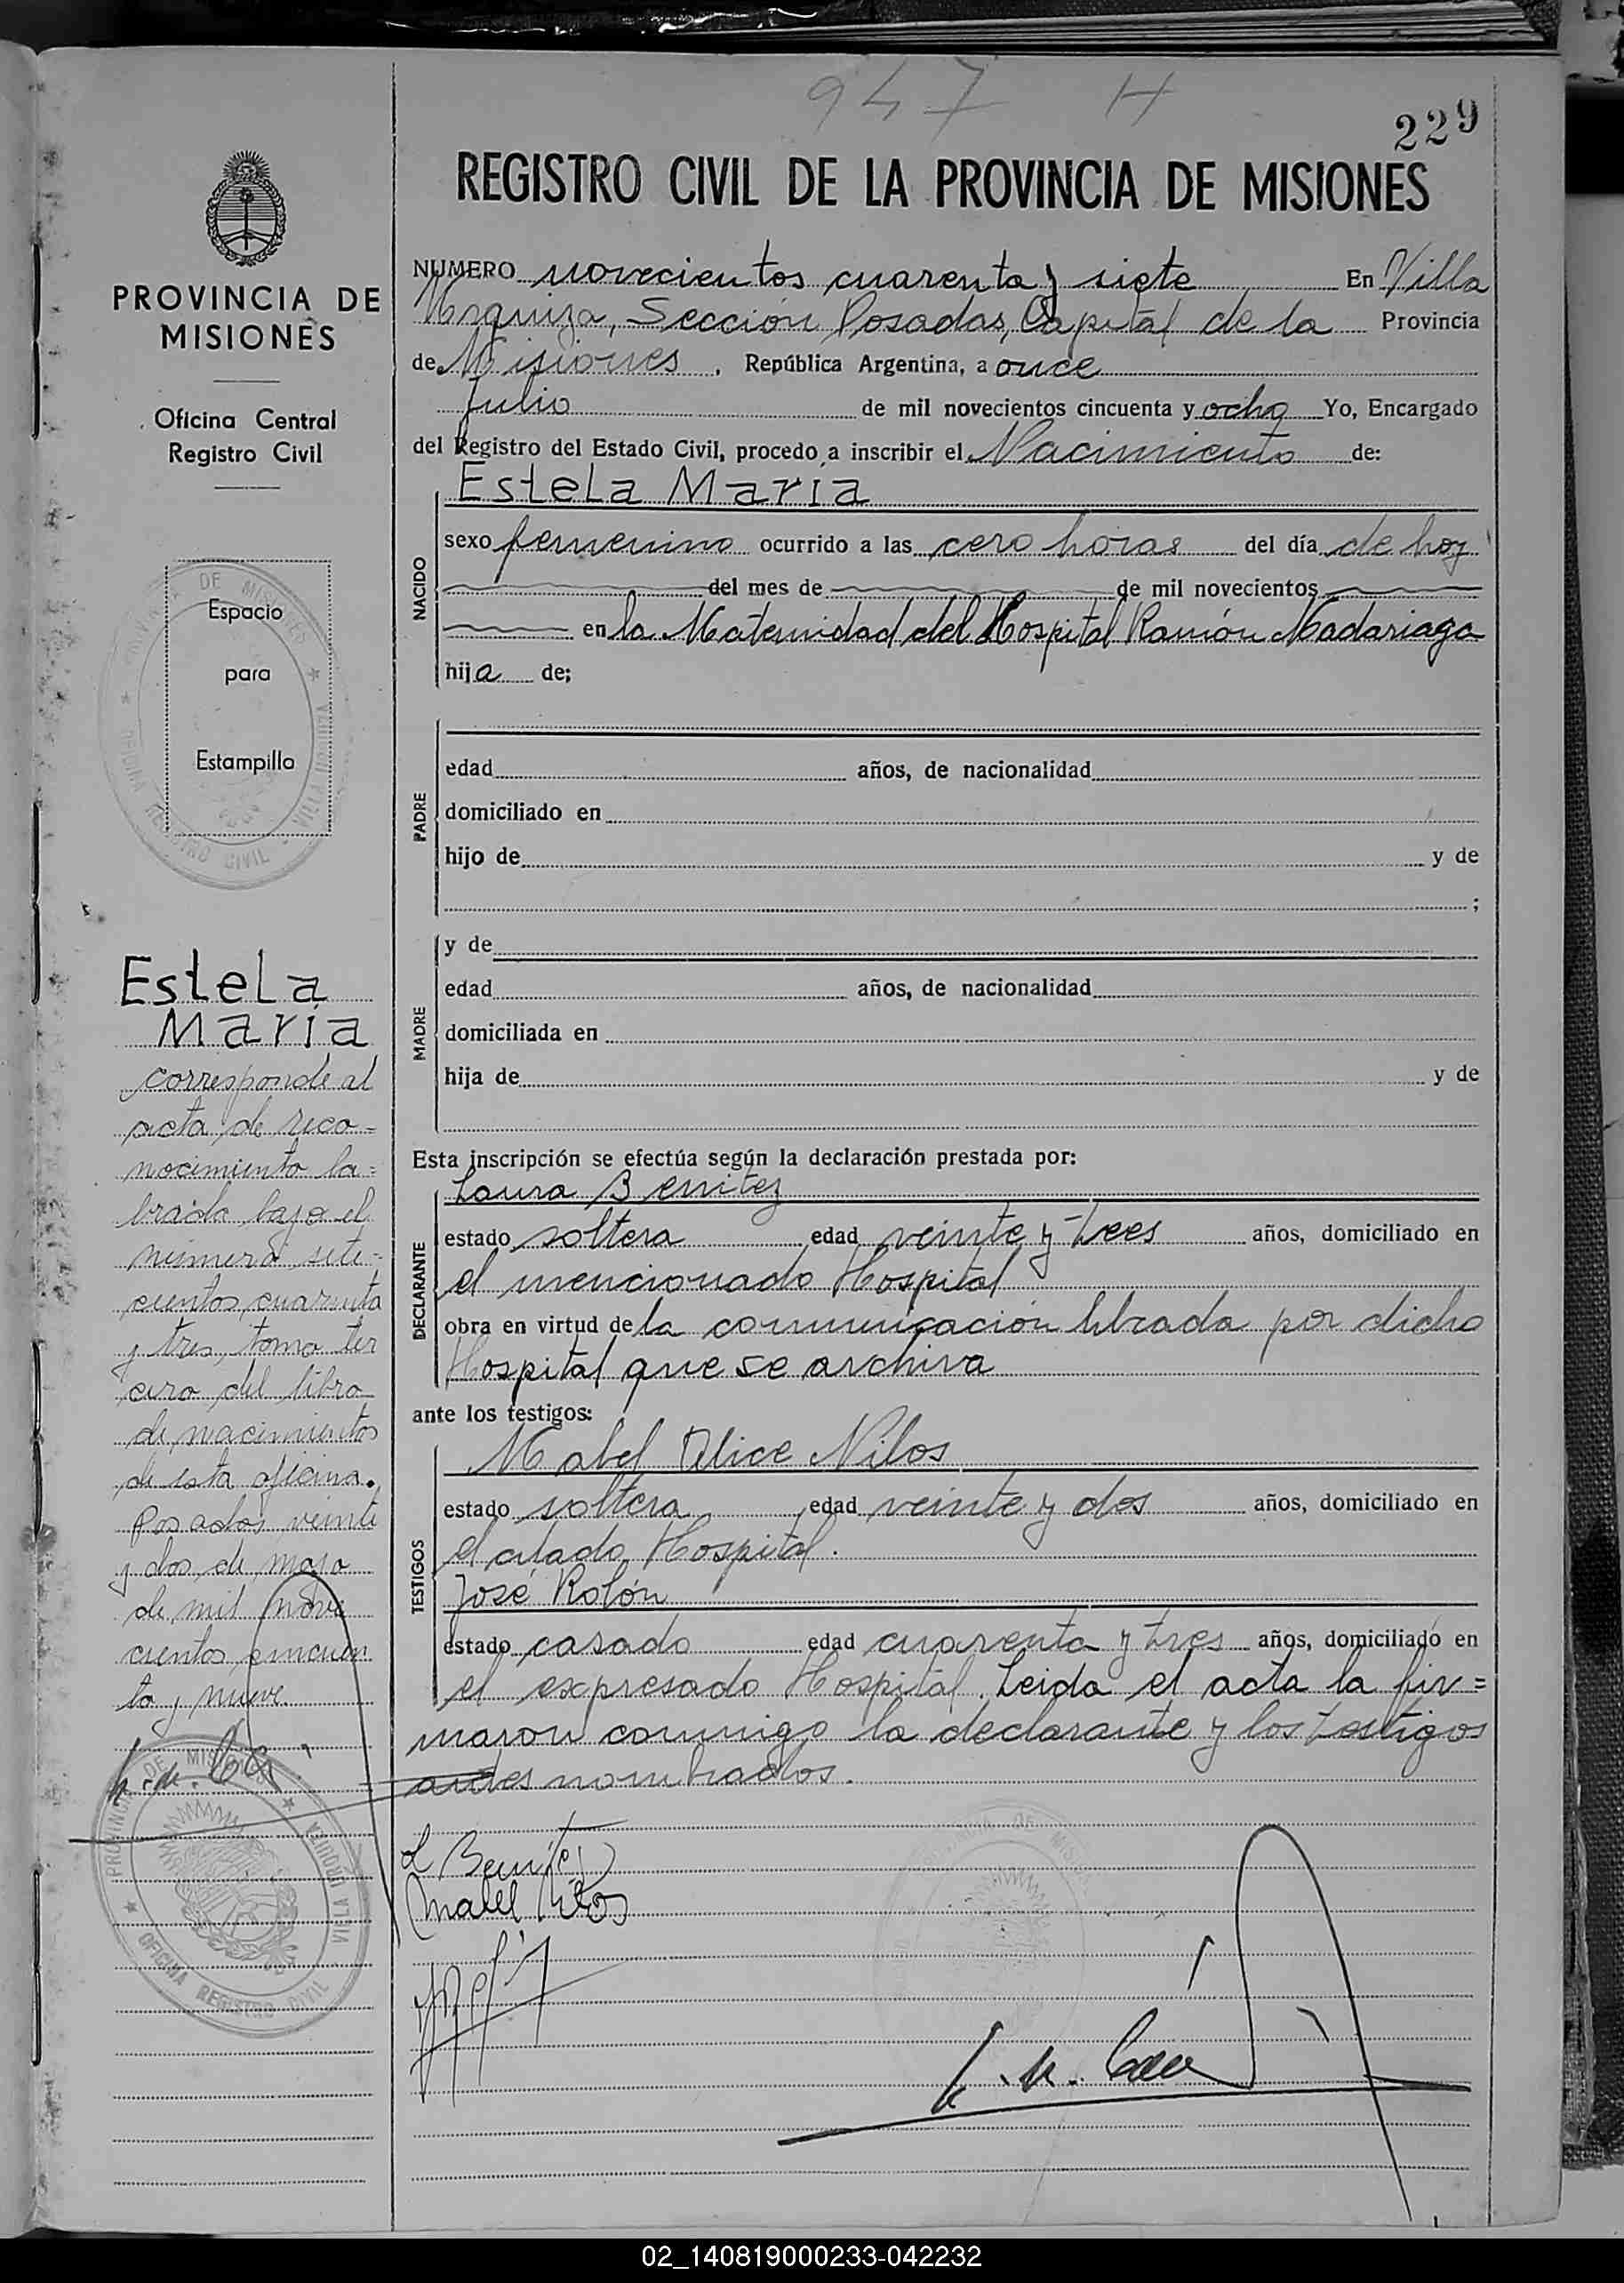 947 H
229
REGISTRO CIVIL DE LA PROVINCIA DE MISIONES
PROVINCIA DE
MISIONES
Oficina Central
Registro Civil
Espacio
para
Estampilla
Estela
María
corresponde al
acta de reco-
nocimiento la=
brada bajo el
número sete-
cientos cuarenta
y tres, tomo ter
cero del libro
de nacimientos
de esta oficina.
Posadas, veinte
y dos de mayo
de mil nove
cientos cincuen
ta y nueve.
PROVINCIA DE MISIONES
OFICINA REGISTRO CIVIL
VILLA URQUIZA
NUMERO novecientos cuarenta y siete En Villa
Urquiza, Sección Posadas, Capital de la Provincia
de Misiones, República Argentina, a once
Julio de mil novecientos cincuenta y ocho Yo, Encargado
del Registro del Estado Civil, procedo a inscribir el Nacimiento de:
NACIDO
Estela María
sexo femenino ocurrido a las cero horas del día de hoy
del mes de de mil novecientos
en la Maternidad del Hospital Ramón Madariaga
hija de;
PADRE
edad años, de nacionalidad
domiciliado en
hijo de y de
;
MADRE
y de
edad años, de nacionalidad
domiciliada en
hija de y de
Esta inscripción se efectúa según la declaración prestada por:
DECLARANTE
Laura Benitez
estado soltera edad veinte y trees años, domiciliado en
el mencionado Hospital
obra en virtud de la comunicación librada por dicho
Hospital que se archiva
ante los testigos:
TESTIGOS
Mabel Alice Nilos
estado soltera edad veinte y dos años, domiciliado en
el citado Hospital.
José Rolón
estado casado edad cuarenta y tres años, domiciliado en
el expresado Hospital. Leida el acta la fir=
maron conmigo la declarante y los testigos
antes nombrados.
L Benitez
Mabel Nilos
02_140819000233-042232